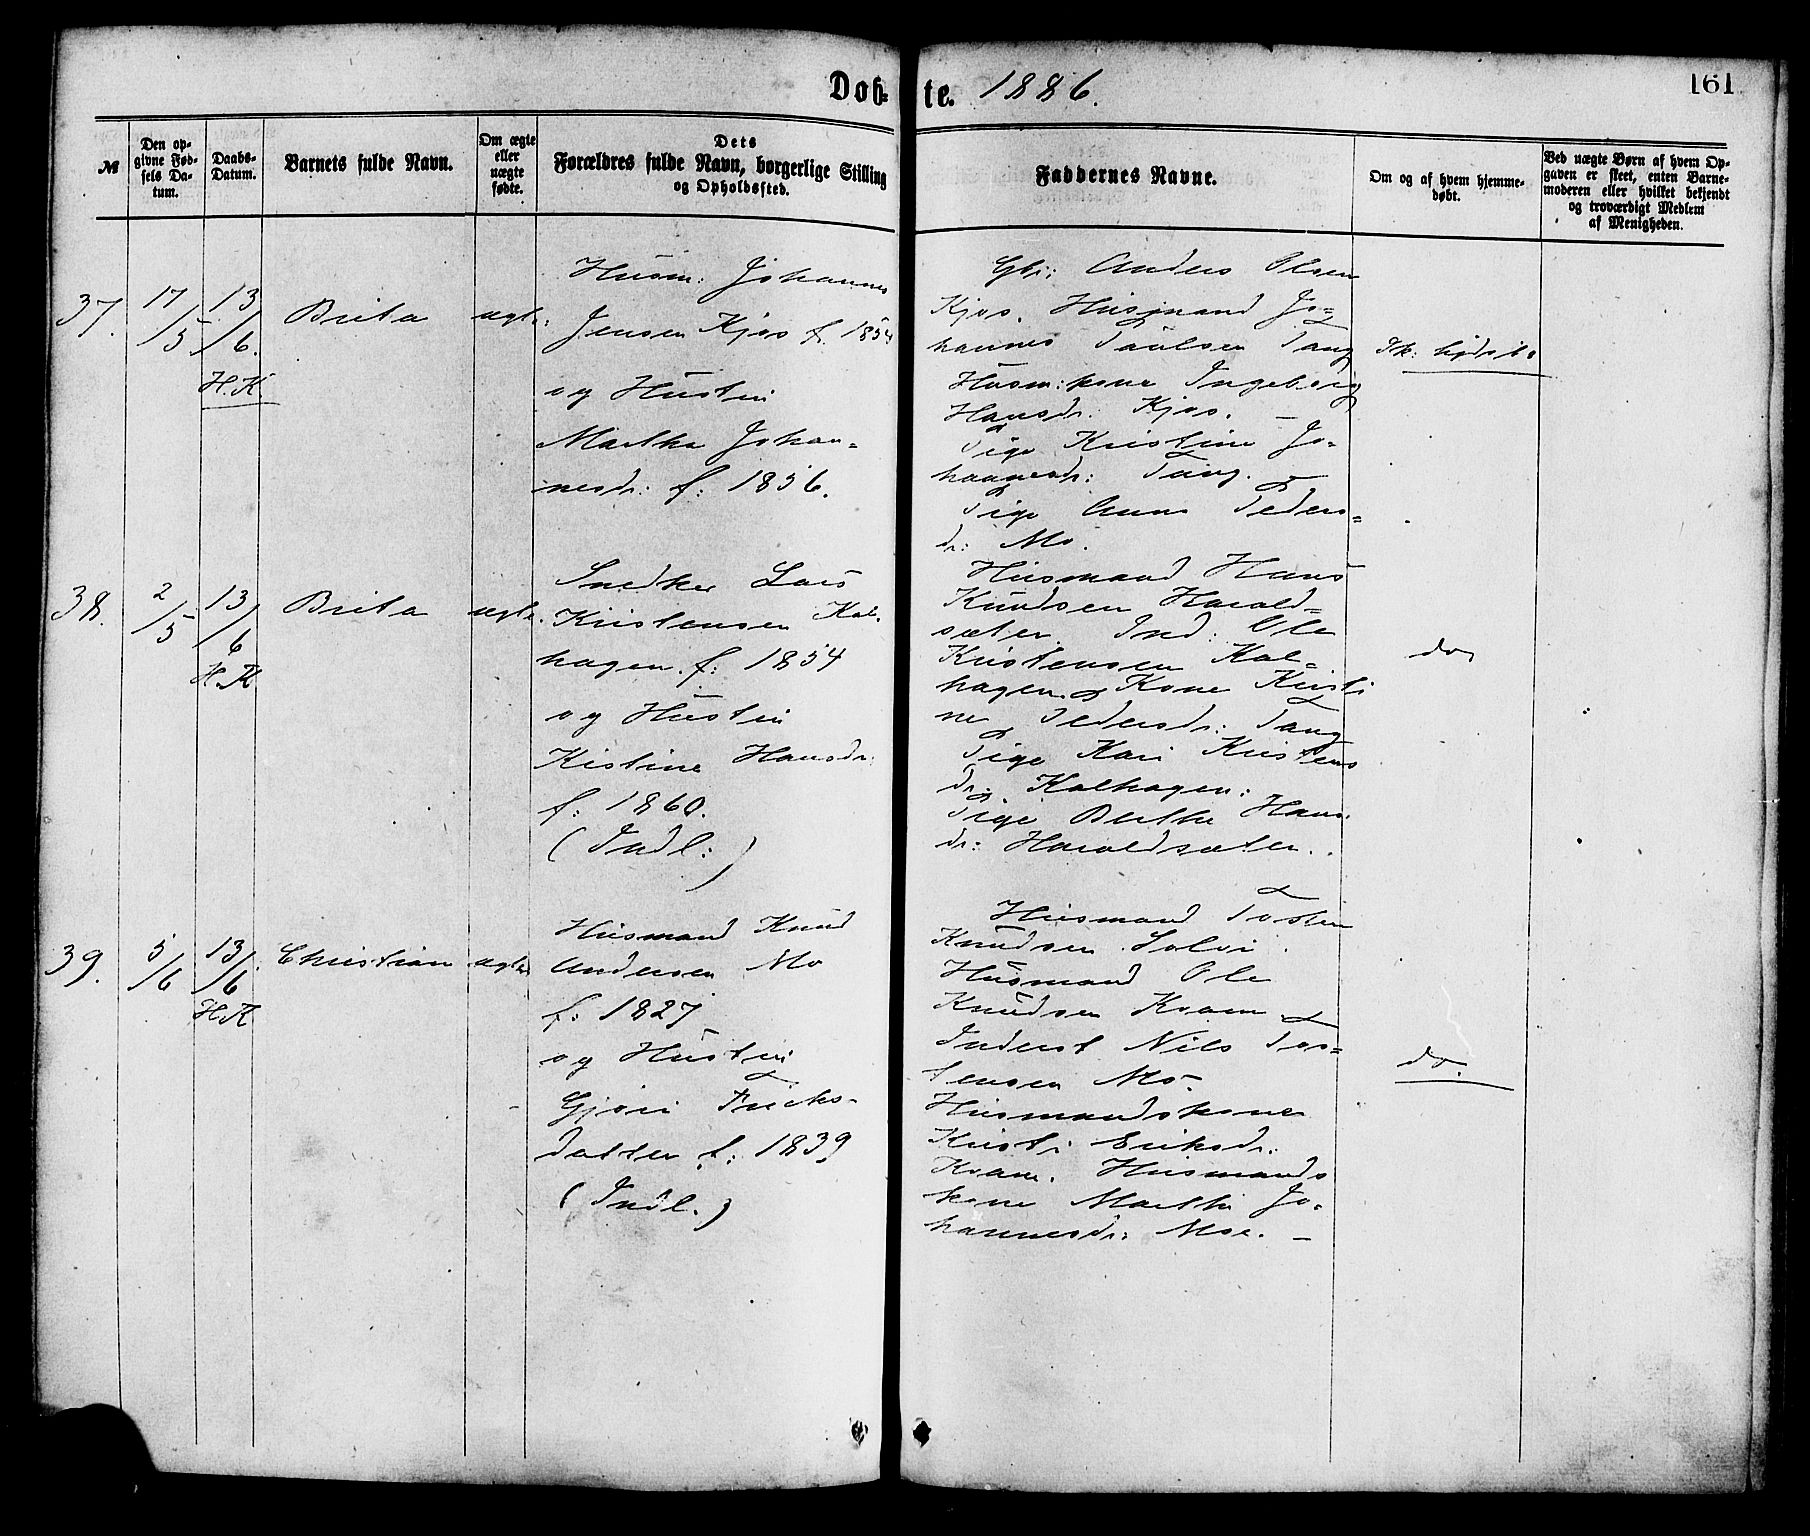 Døb-
te. 1886.
161
№
Den op-
givne Fød-
sels Da-
tum.
Daabs-
Datum.
Barnets fulde Navn.
Om ægte
eller
uægte
fødte.
Dets
Forældres fulde Navn, borgerlige Stilling
og Opholdssted.
Faddernes Navne.
Om og af hvem hjemme-
døbt.
Ved uægte Børn af hvem Op-
gaven er skeet, enten Barne-
moderen eller hvilket bekjendt
og troværdigt Medlem
af Menigheden.
37.
17/5
13/6.
H.K.
Brita
ægte:
Husm: Johannes
Jensen Kjos f. 1854
og Hustru
Martha Johan-
nesdr: f: 1856.
Gbr: Anders Olsen
Kjos. Husmand Jo-
hannes Paulsen Tang
Husm:kone Ingeborg
Hansdr. Kjos. —
Pige Kristine Jo-
hannesdr: Tang.
Pige Anna Peders-
dr: Mo.
38.
2/5
13/6
H.K
Brita
ægte.
Snedker Lars
Kristensen Kal-
hagen. f: 1854
og Hustru
Kistine Hansdr:
f: 1860.
(Indl:)
Husmand Hans
Knudsen Harald-
sæter. Ind: Ole
Kristensen Kal-
hagen. Kone Kristi
ne Pedersdr: Tang
Pige Kari Kristens
dr: Kalhagen:
Pige Berthe Hans
dr: Haraldsæter.
do,
39.
5/6
13/6.
H.K
Christian
ægte
Husmand Knud
Andersen Mo
f: 1827
og Hustru
Gjøri
datter f: 1839
(Indl.)
Husmand Tosten
Knudsen Solvi.
Husmand Ole
Knudsen Kvam.
Inderst Nils Tos-
tensen Mo.
Husmandskone
Kristi Eriksdr:
Kvam. Husmands
kone Marthe Jo-
hannesdr: Moe. —
do.